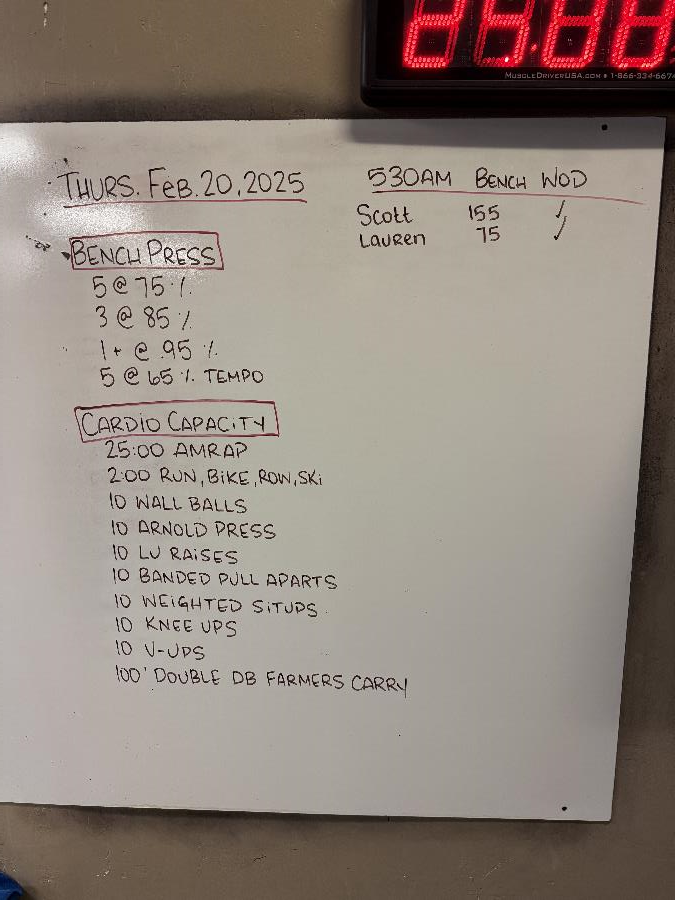 25:00
MUSCLEDRIVERUSA.COM • 1-866-334-667
THURS. FEB. 20, 2025
BENCH PRESS
5 @ 75 %
3 @ 85 %
1+ @ 95 %
5 @ 65 % TEMPO
CARDIO CAPACITY
25:00 AMRAP
2:00 RUN, BIKE, ROW, SKI
10 WALL BALLS
10 ARNOLD PRESS
10 LU RAISES
10 BANDED PULL APARTS
10 WEIGHTED SITUPS
10 KNEE UPS
10 V-UPS
100' DOUBLE DB FARMERS CARRY
530AM BENCH WOD
Scott 155 ✓
Lauren 75 ✓